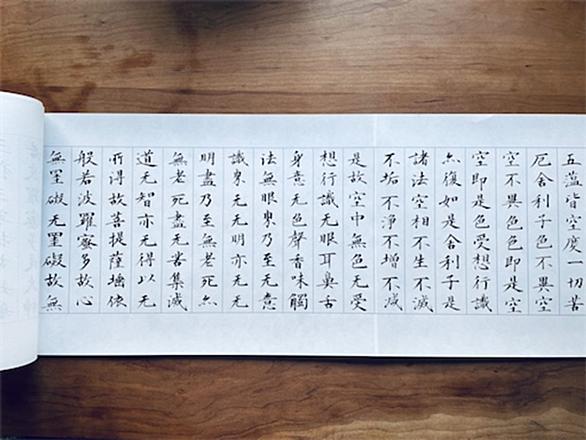 五蘊皆空度一切苦
厄舍利子色不異空
空不異色色即是空
空即是色受想行識
亦復如是舍利子是
諸法空相不生不滅
不垢不淨不增不減
是故空中無色无受
想行識无眼耳鼻舌
身意无色聲香味觸
法無眼界乃至无意
識界无无明亦无无
明盡乃至無老死亦
無老死盡无苦集滅
道无智亦无得以无
所得故菩提薩埵依
般若波羅蜜多故心
無罣礙无罣礙故無